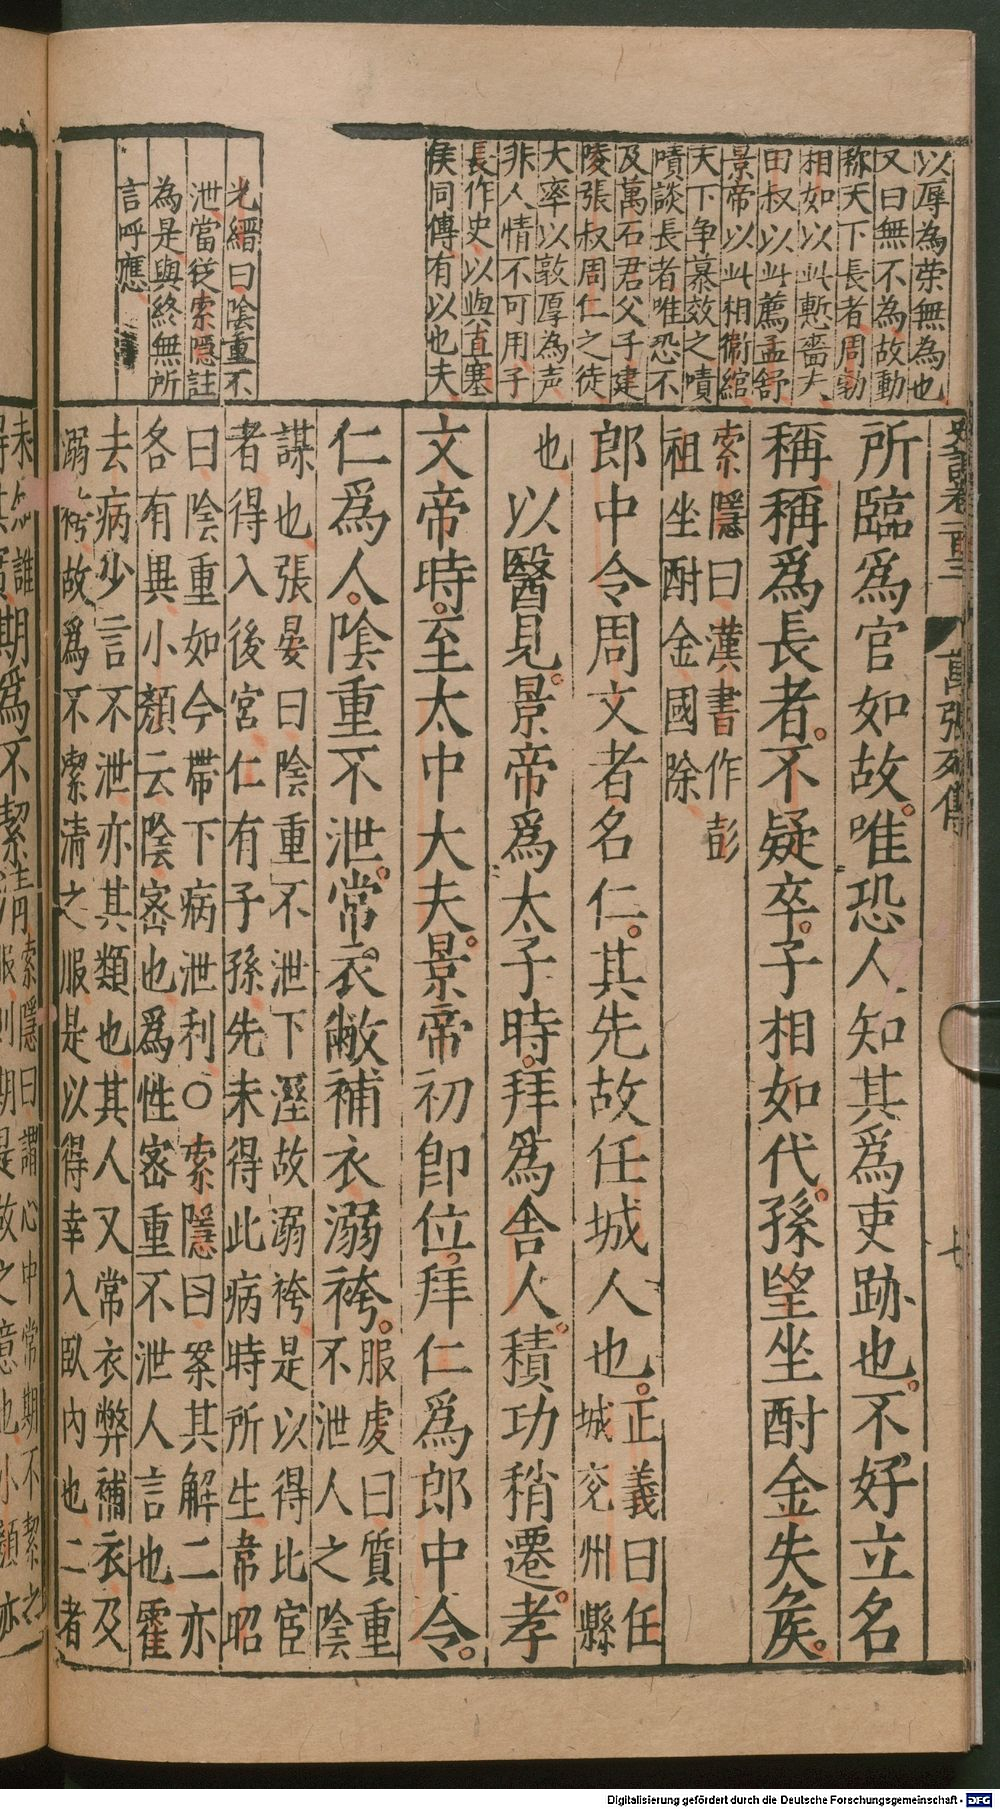 以辱為荣無為也
又曰無不為故動
称天下長者周勃
相如以此慙嗇夫
田叔以此薦孟舒
景帝以此相衞綰
天下争慕效之嘖
嘖談長者唯恐不
及萬石君父子建
陵張叔周仁之徒
大率以敦厚為声
非人情不可用子
長作史以與直塞
侯同傳有以也夫
光縉曰陰重不
泄當從索隱註
為是與終無所
言呼應
史記卷一百三
萬張列傳
七
所臨爲官如故唯恐人知其爲吏跡也不好立名
稱稱爲長者不疑卒子相如代孫望坐酎金失矦
索隱曰漢書作彭
祖坐酎金國除
郎中令周文者名仁其先故任城人也正義曰任
城兖州縣
也以醫見景帝爲太子時拜爲舎人積功稍遷孝
文帝時至太中大夫景帝初卽位拜仁爲郎中令
仁爲人陰重不泄常衣敝補衣溺袴服虔曰質重
不泄人之陰
謀也張晏曰陰重不泄下溼故溺袴是以得比宦
者得入後宮仁有子孫先未得此病時所生韋昭
曰陰重如今帶下病泄利○索隱曰案其解二亦
各有異小顏云陰密也爲性密重不泄人言也霍
去病少言不泄亦其類也其人又常衣弊補衣及
溺袴故爲不潔清之服是以得幸入臥內也二者
未知誰
得其實
期爲不絜清
索隱曰謂心中常期不絜之
服則期是故之意也小顏亦
Digitalisierung gefördert durch die Deutsche Forschungsgemeinschaft - DFG